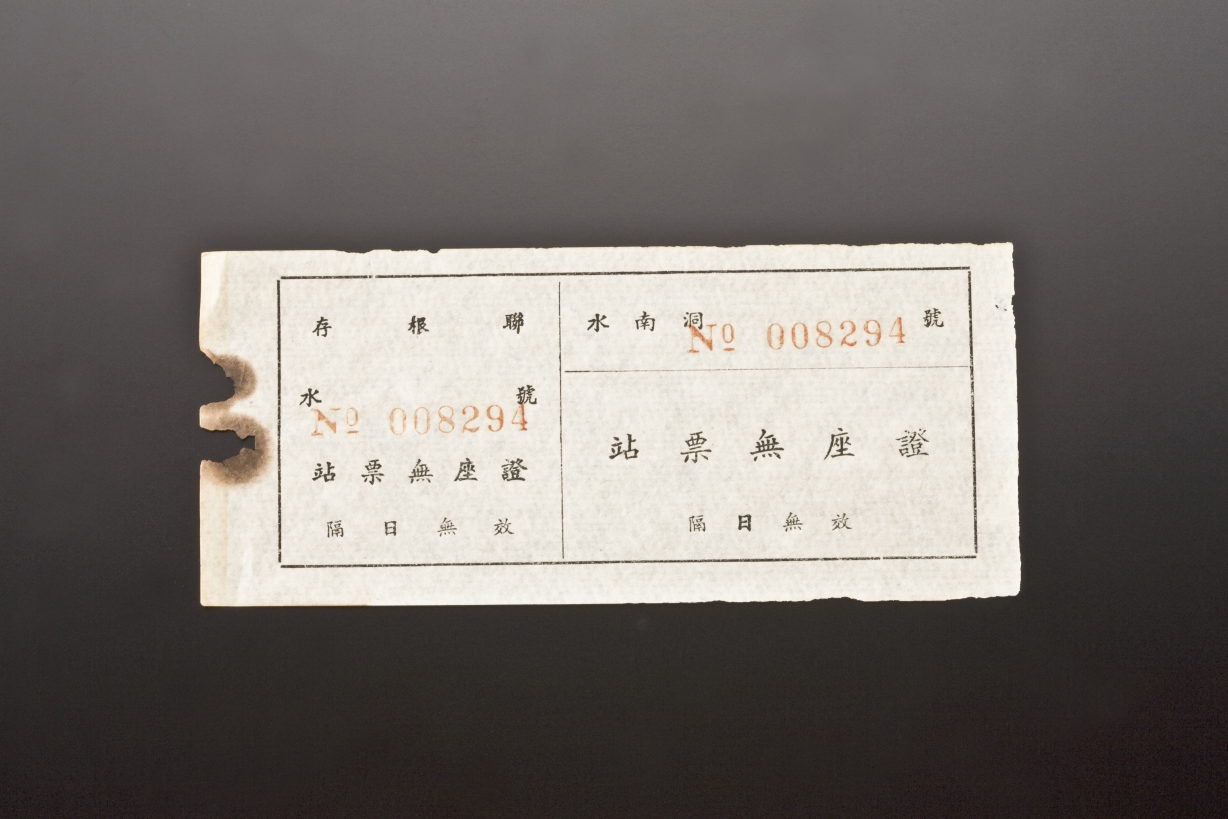 存根聯
水號
№ 008294
站票無座證
隔日無效
水南洞號
№ 008294
站票無座證
隔日無效